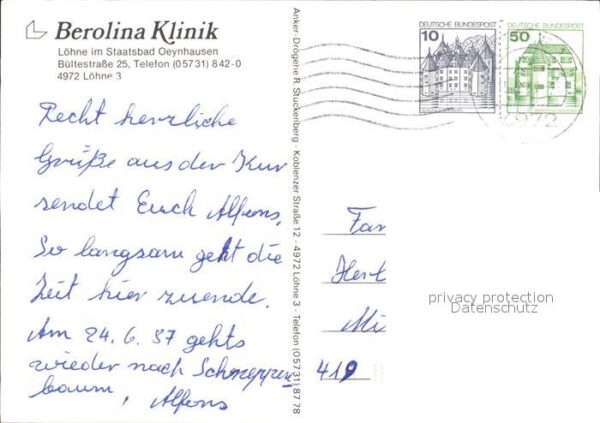 Berolina Klinik
Löhne im Staatsbad Oeynhausen
Bültestraße 25, Telefon (05731) 842-0
4972 Löhne 3
Recht herzliche
Grüße aus der Kur
sendet Euch Alfons.
So langsam geht die
Zeit hier zuende.
Am 24. 6. 87 gehts
wieder nach Schneppen
baum, Alfons
Anker-Drogerie R. Stuckenberg - Koblenzer Straße 12 - 4972 Löhne 3 - Telefon (05731) 87 78
10
DEUTSCHE BUNDESPOST
50
DEUTSCHE BUNDESPOST
4972
Fam
Herb
Mi
419
privacy protection
Datenschutz